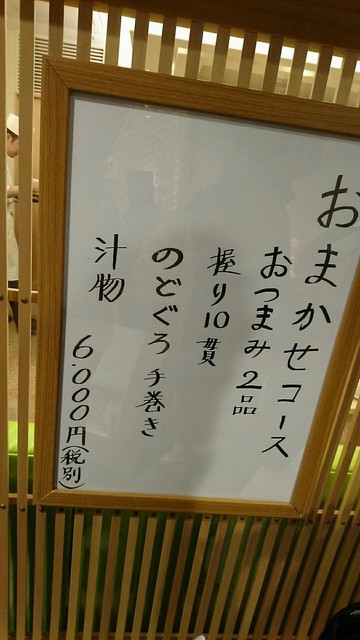 おまかせコース
おつまみ2品
握り10貫
のどぐろ手巻き
汁物
6.000円(税別)